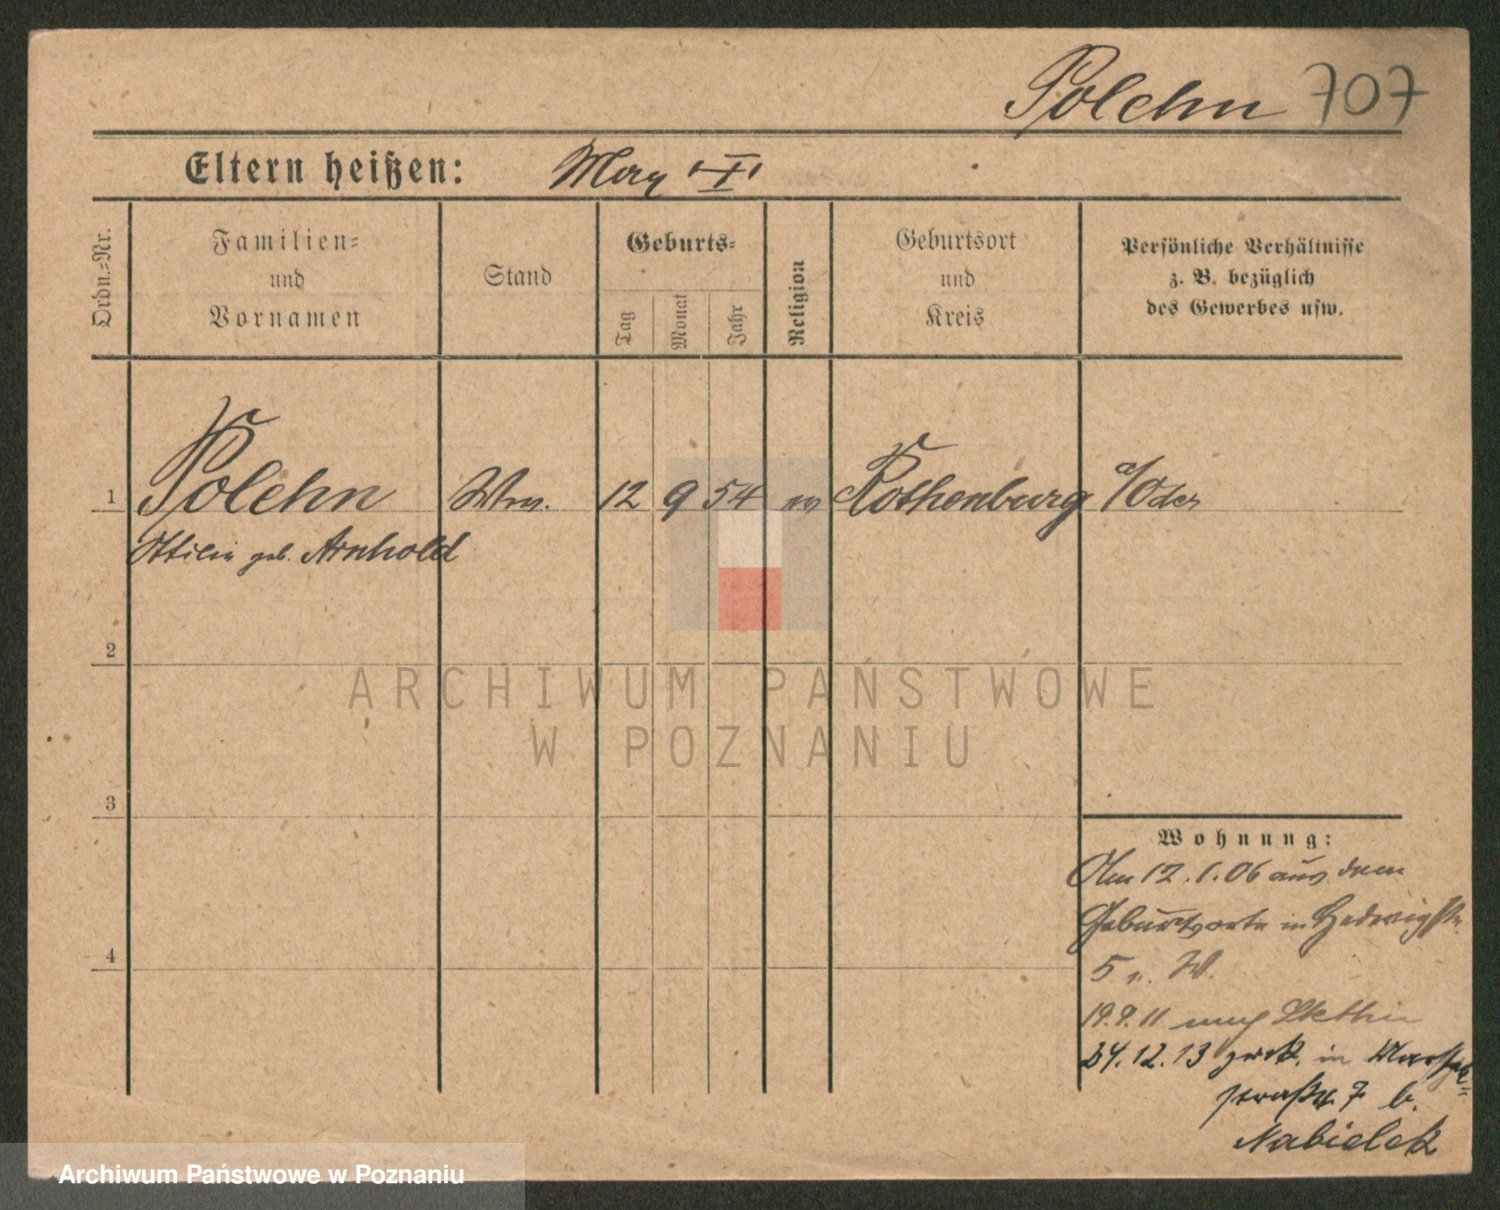 Polehn 707
Eltern heißen:
Ordn.-Nr.
Familien-
und
Vornamen
Stand
Geburts-
Tag
Monat
Jahr
Religion
Geburtsort
und
Kreis
Persönliche Verhältnisse
z. B. bezüglich
des Gewerbes usw.
1 Polehn Ww. 12 9 54 Rothenburg a/Oder
Ottilie geb. Arnhold
2
3
4
Wohnung:
Am 12.1.06 aus dem
Geburtsorte in Hedwigstr.
5 W.
19.9.11 nach Stettin
24.12.13 zurk. in
straße 7 b.
Nabielek
ARCHIWUM PAŃSTWOWE
W POZNANIU
Archiwum Państwowe w Poznaniu